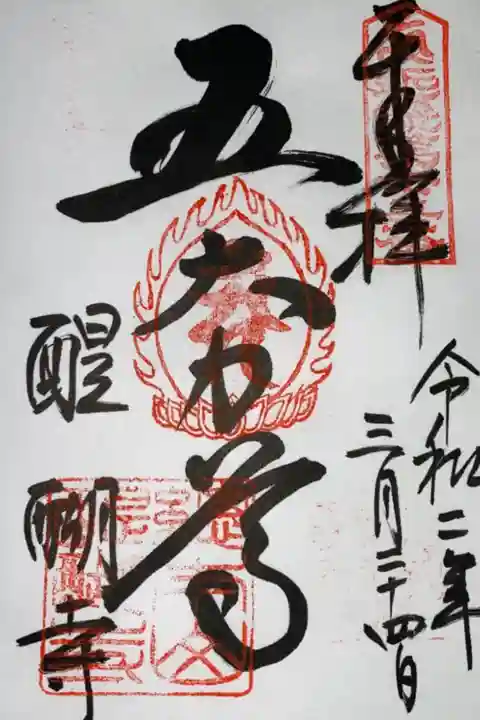 奉拝
令和二年
三月二十四日
五大力尊
醍醐寺